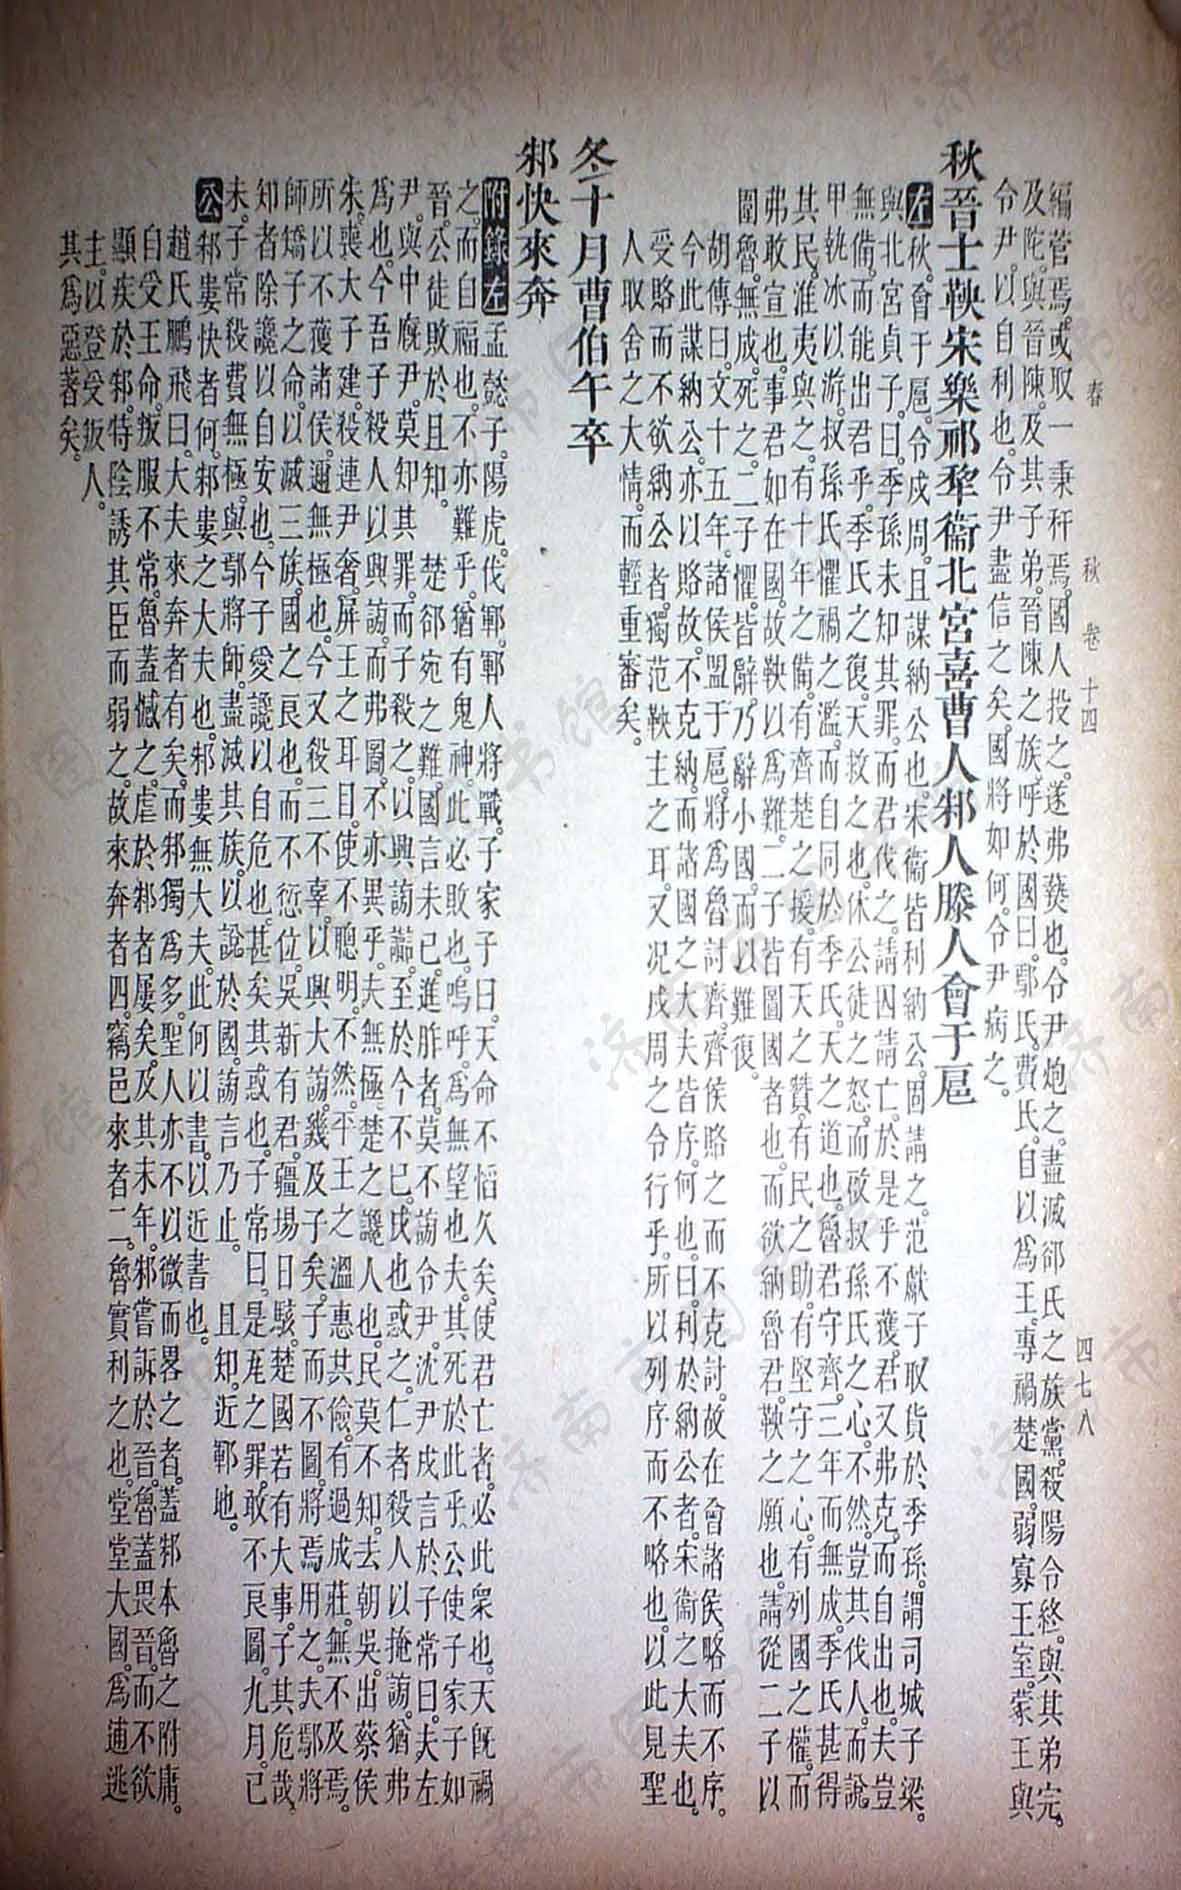 春 秋 卷十四 四七八
編菅焉。或取一秉秆焉。國人投之。遂弗爇也。令尹炮之。盡滅郤氏之族黨。殺陽令終。與其弟完。
及陀。與晉陳。及其子弟。晉陳之族。呼於國曰。鄢氏費氏。自以爲王。專禍楚國。弱寡王室。蒙王與
令尹。以自利也。令尹盡信之矣。國將如何。令尹病之。
秋晉士鞅宋樂祁犂衞北宮喜曹人邾人滕人會于扈
左秋。會于扈。令戍周。且謀納公也。宋衞皆利納公。固請之。范獻子取貨於季孫。謂司城子梁。
與北宮貞子。曰。季孫未知其罪。而君伐之。請囚請亡。於是乎不獲。君又弗克。而自出也。夫豈
無備。而能出君乎。季氏之復。天救之也。休公徒之怒。而啟叔孫氏之心。不然。豈其伐人。而說
甲執冰以游。叔孫氏懼禍之濫。而自同於季氏。天之道也。魯君守齊。三年而無成。季氏甚得
其民。淮夷與之。有十年之備。有齊楚之援。有天之贊。有民之助。有堅守之心。有列國之權。而
弗敢宣也。事君如在國。故鞅以爲難。二子皆圖國者也。而欲納魯君。鞅之願也。請從二子以
圍魯。無成。死之。二子懼。皆辭。乃辭小國。而以難復。
胡傳曰。文十五年。諸侯盟于扈。將爲魯討齊。齊侯賂之而不克討。故在會諸侯。略而不序。
今此謀納公。亦以賂故。不克納。而諸國之大夫皆序。何也。曰。利於納公者。宋衞之大夫也。
受賂而不欲納公者。獨范鞅主之耳。又况戍周之令行乎。所以列序而不略也。以此見聖
人取舍之大情。而輕重審矣。
冬十月曹伯午卒
邾快來奔
附錄左孟懿子。陽虎。伐鄆。鄆人將戰。子家子曰。天命不慆久矣。使君亡者。必此衆也。天既禍
之。而自福也。不亦難乎。猶有鬼神。此必敗也。嗚呼。爲無望也夫。其死於此乎。公使子家子如
晉。公徒敗於且知。 楚郤宛之難。國言未已。進胙者。莫不謗令尹。沈尹戌言於子常曰。夫左
尹。與中廐尹。莫知其罪。而子殺之。以興謗讟。至於今不已。戌也惑之。仁者殺人以掩謗。猶弗
爲也。今吾子殺人以興謗。而弗圖。不亦異乎。夫無極。楚之讒人也。民莫不知。去朝吳。出蔡侯
朱。喪大子建。殺連尹奢。屏王之耳目。使不聰明。不然。平王之溫惠共儉。有過成莊。無不及焉。
所以不獲諸侯。邇無極也。今又殺三不辜。以興大謗。幾及子矣。子而不圖。將焉用之。夫鄢將
師矯子之命。以滅三族。國之良也。而不愆位。吳新有君。疆場日駭。楚國若有大事。子其危哉。
知者除讒以自安也。今子愛讒以自危也。甚矣其惑也。子常曰。是瓦之罪。敢不良圖。九月。己
未。子常殺費無極。與鄢將師。盡滅其族。以說於國。謗言乃止。 且知。近鄆地。
公邾婁快者何。邾婁之大夫也。邾婁無大夫。此何以書。以近書也。
趙氏鵬飛曰。大夫來奔者有矣。而邾獨爲多。聖人亦不以微而畧之者。蓋邾本魯之附庸。
自受王命。叛服不常。魯蓋憾之。虐於邾者屢矣。及其末年。邾嘗訴於晉。魯蓋畏晉。而不欲
顯疾於邾。特陰誘其臣而弱之。故來奔者四。竊邑來者二。魯實利之也。堂堂大國。爲逋逃
主。以登受叛人。
其爲惡著矣。